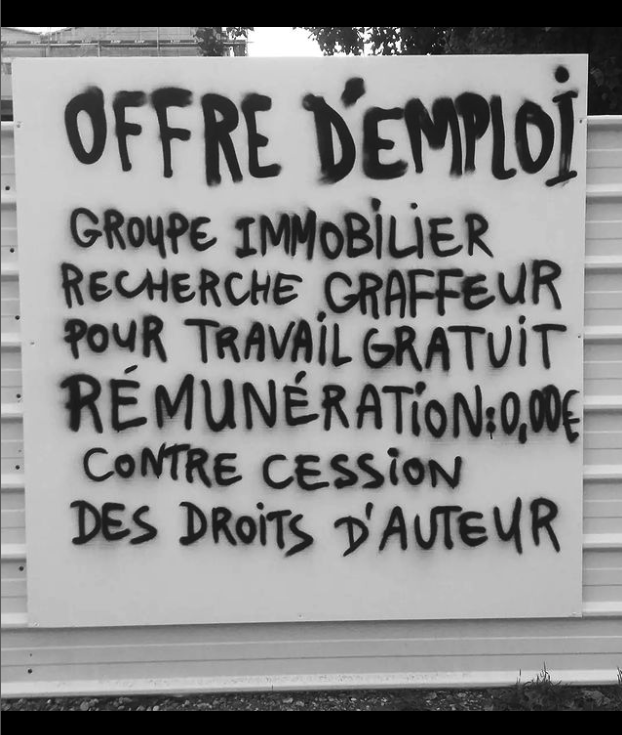 OFFRE D'EMPLOI
GROUPE IMMOBILIER
RECHERCHE GRAFFEUR
POUR TRAVAIL GRATUIT
RÉMUNÉRATION:0,00€
CONTRE CESSION
DES DROITS D'AUTEUR